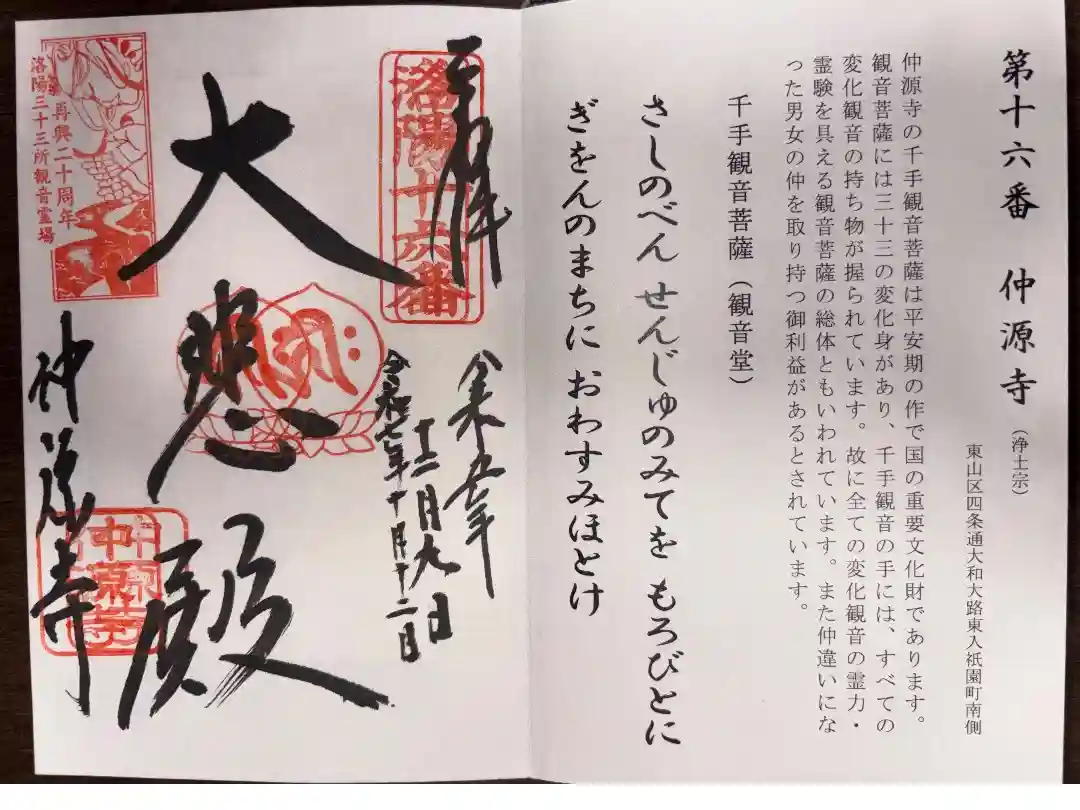 第十六番 仲源寺(浄土宗)
東山区四条通大和大路東入祇園町南側
仲源寺の千手観音菩薩は平安期の作で国の重要文化財であります。
観音菩薩には三十三の変化身があり、千手観音の手には、すべての
変化観音の持ち物が握られています。故に全ての変化観音の霊力・
霊験を具える観音菩薩の総体ともいわれています。また仲違いにな
った男女の仲を取り持つ御利益があるとされています。
千手観音菩薩(観音堂)
さしのべん せんじゅのみてを もろびとに
ぎをんのまちに おわすみほとけ
奉拝
洛陽十六番
令和五年
十二月九日
令和七年十月十二日
大悲殿
再興二十周年
洛陽三十三所観音霊場
仲源寺
仲源寺